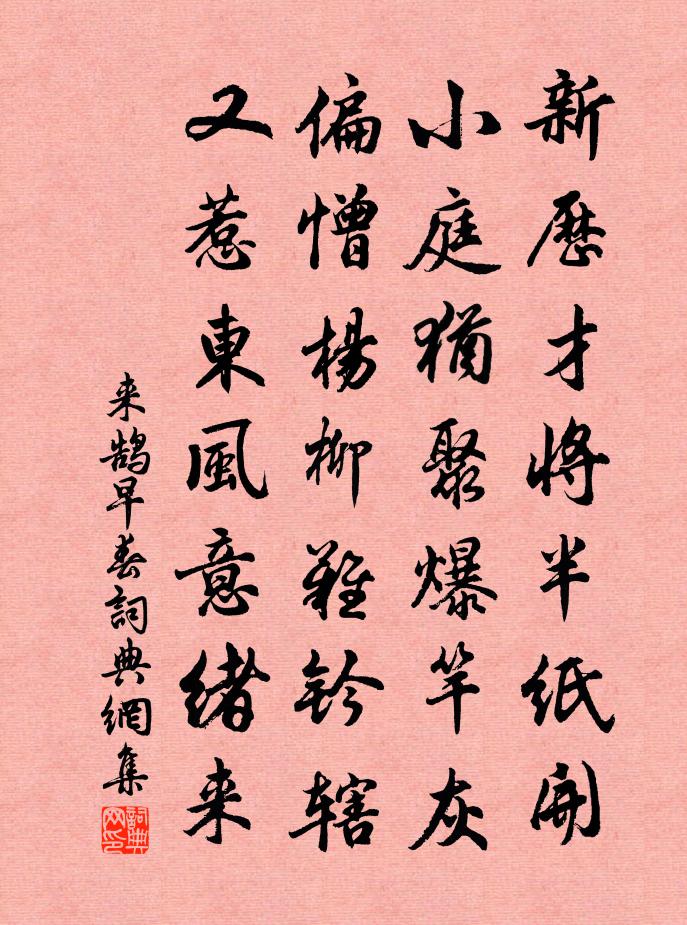 新曆才將半紙開
小庭猶聚爆竿灰
偏憎楊柳難鈐轄
又惹東風意緒来
来鵠早春詞典網集
詞典网印